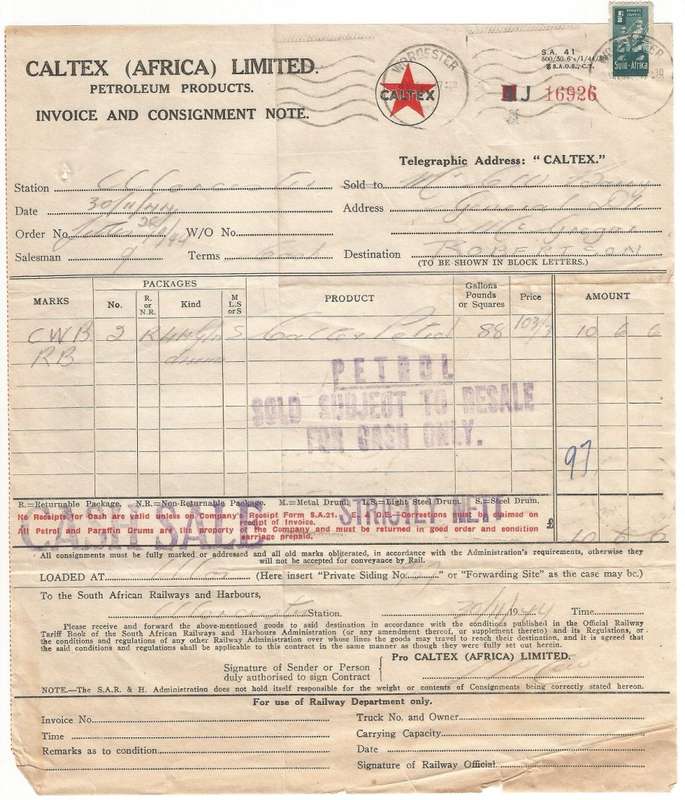 S.A. 41
WORCESTER
Suid-Afrika
CALTEX (AFRICA) LIMITED.
PETROLEUM PRODUCTS.
INVOICE AND CONSIGNMENT NOTE.
CALTEX
J 16926
Telegraphic Address: "CALTEX."
Station
Sold to
Date 30/11/44
Address
Order No.
W/O No.
McGregor
Salesman 9 Terms
Destination ROBERTSON
(TO BE SHOWN IN BLOCK LETTERS.)
MARKS PACKAGES PRODUCT Gallons Pounds or Squares Price AMOUNT
No. R. or N.R. Kind M L.S or S
CWB 2 R S Caltex Petrol 88 103/3 10 6 6
RB drums
PETROL
SOLD SUBJECT TO RESALE
FOR CASH ONLY.
97
R.=Returnable Package. N.R.=Non-Returnable Package. M.=Metal Drum. L.S.=Light Steel Drum. S.=Steel Drum.
No Receipts for Cash are valid unless on Company's Receipt Form S.A.21. E. & O.E.—Corrections must be claimed on receipt of Invoice.
All Petrol and Paraffin Drums are the property of the Company and must be returned in good order and condition carriage prepaid.
CASH SALE STRICTLY NETT
£ 10 6 6
All consignments must be fully marked or addressed and all old marks obliterated, in accordance with the Administration's requirements, otherwise they
will not be accepted for conveyance by Rail.
LOADED AT (Here insert "Private Siding No." or "Forwarding Site" as the case may be.)
To the South African Railways and Harbours,
Worcester Station. 30/11/1944 Time
Please receive and forward the above-mentioned goods to said destination in accordance with the conditions published in the Official Railway
Tariff Book of the South African Railways and Harbours Administration (or any amendment thereof, or supplement thereto) and its Regulations, or
the conditions and regulations of any other Railway Administration over whose lines the goods may travel to reach their destination, and it is agreed that
the said conditions and regulations shall be applicable to this contract in the same manner as though they were fully set out herein.
Pro CALTEX (AFRICA) LIMITED.
Signature of Sender or Person
duly authorised to sign Contract
NOTE.—The S.A.R. & H. Administration does not hold itself responsible for the weight or contents of Consignments being correctly stated hereon.
For use of Railway Department only.
Invoice No. Truck No. and Owner
Time Carrying Capacity
Remarks as to condition Date
Signature of Railway Official